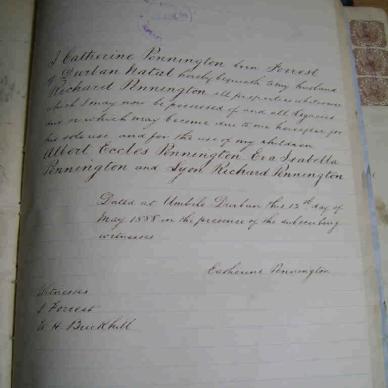 I Catherine Pennington born Forrest
of Durban Natal hereby bequeath to my husband
Richard Pennington all properties whatsoever
which I may now be possessed of and all legacies
which may become due to me hereafter for
his sole use and for the use of my children
Albert Eccles Pennington Eva Isabella
Pennington and Lyon Richard Pennington
Dated at Umbilo Durban this 12th day of
May 1888 in the presence of the subscribing
witnesses
Catherine Pennington
Witnesses
J Forrest
W. H. Brickhill